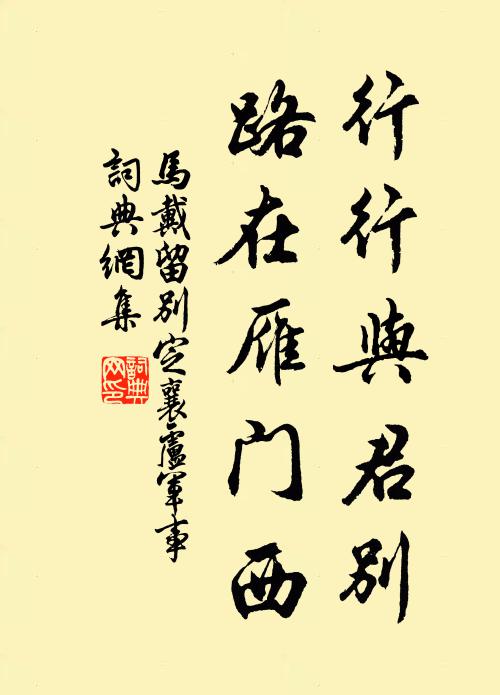 行行與君别
路在雁门西
馬戴留别定襄盧軍事
詞典網集
詞典網印